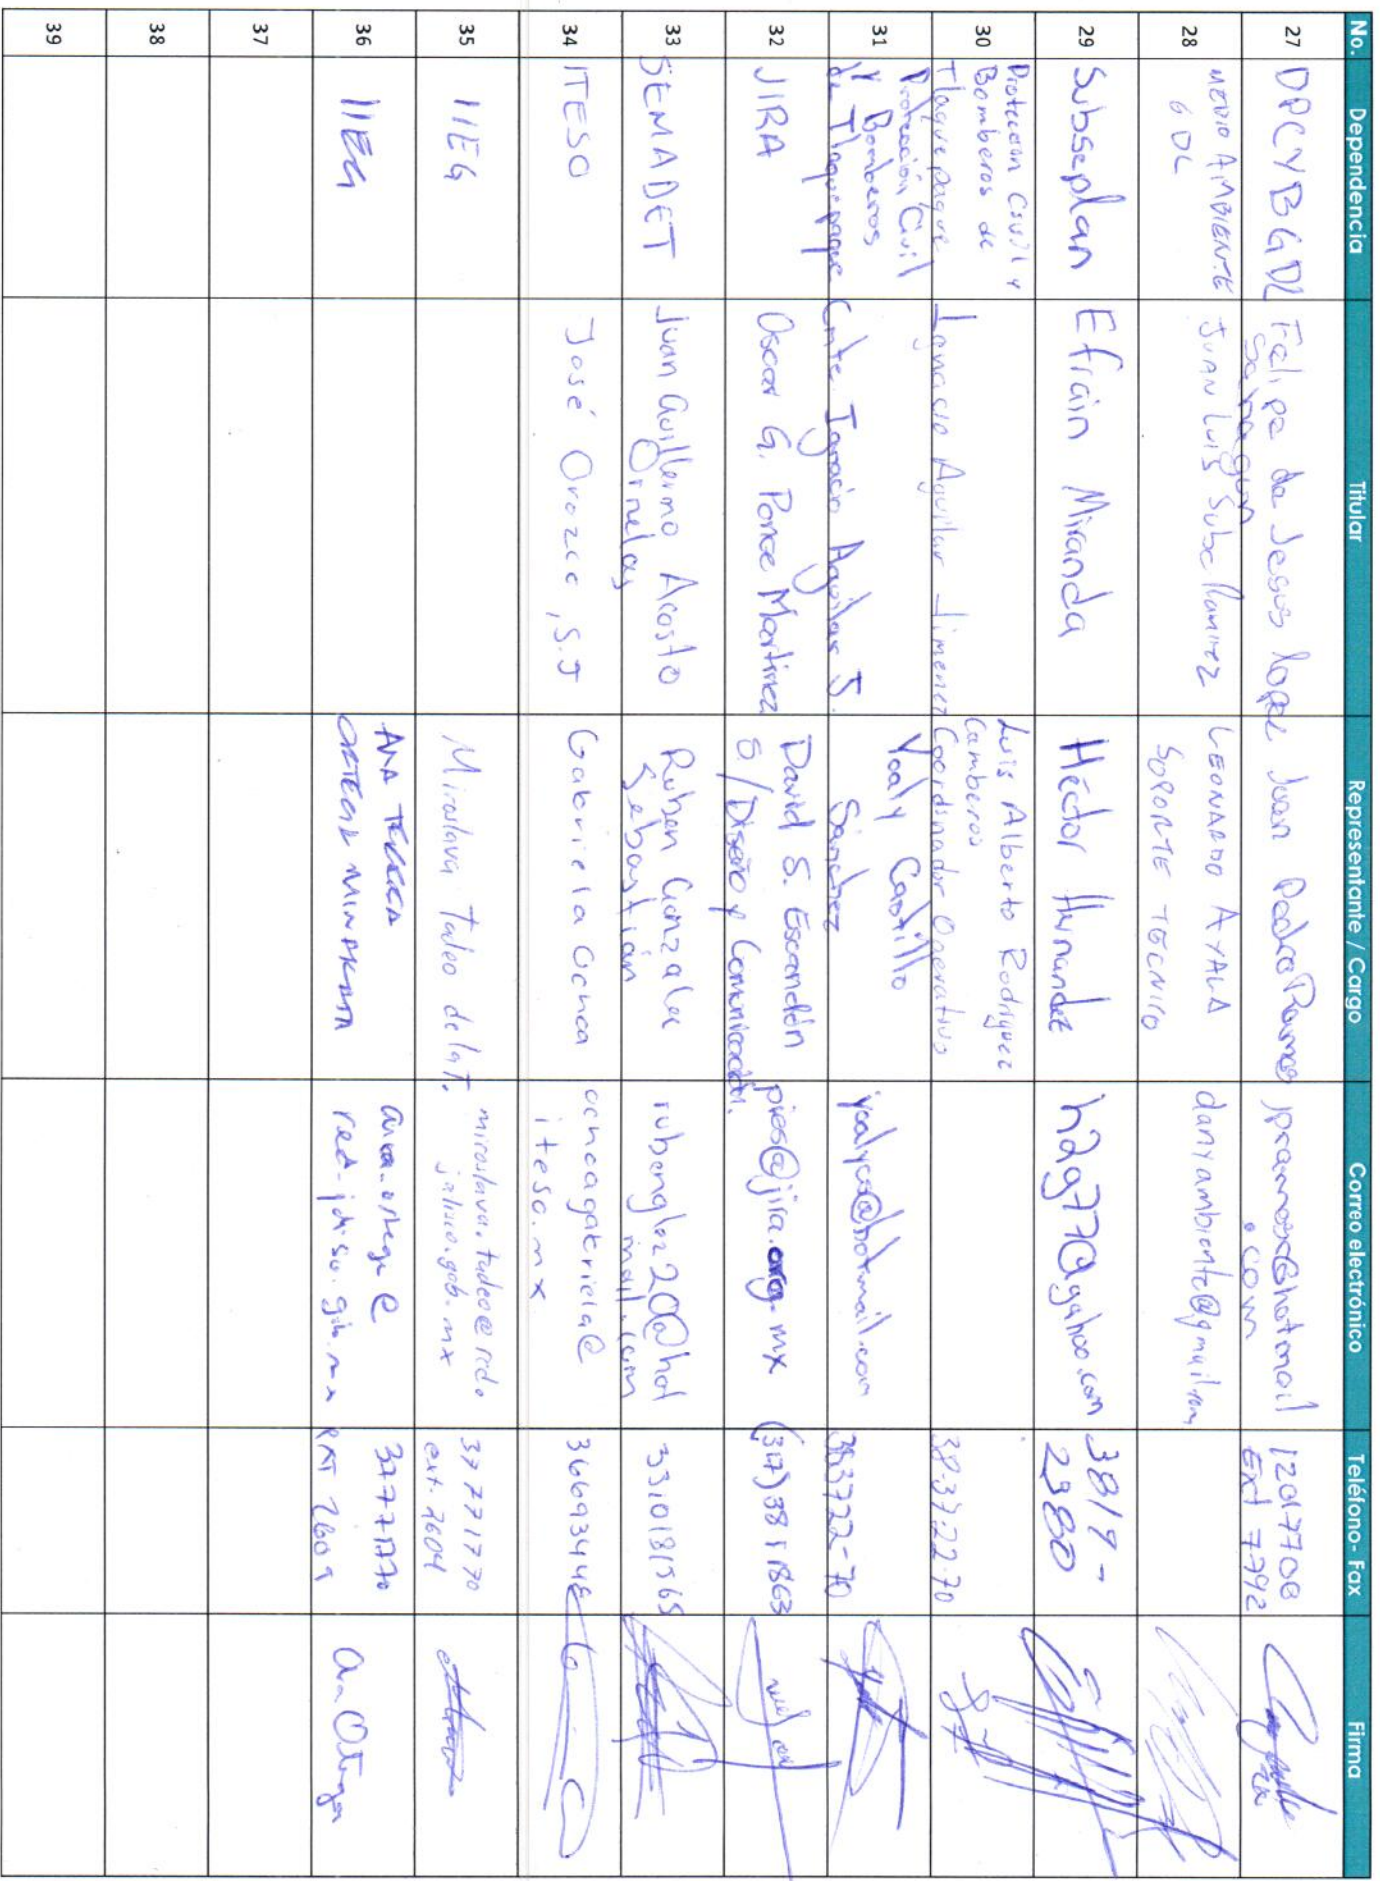 No. Dependencia Titular Representante / Cargo Correo electrónico Teléfono- Fax Firma
27 DPCYBGDL Felipe de Jesus lopez Sahagun Juan Pedro Ramos pramosr@hotmail.com 12017700 Ext 7792
28 MEDIO AMBIENTE GDL JUAN LUIS Sube Ramirez LEONARDO AYALA SOPORTE TECNICO danyambiente@gmail.com
29 Subseplan Efrain Miranda Héctor Hernandez h2ag77@yahoo.com 3819-2380
30 Proteccion Civil y Bomberos de Tlaquepaque Ignacio Aguilar Jimenez Luis Alberto Rodriguez Camberos Coordinador Operativo 38.37.22.70
31 Protección Civil y Bomberos de Tlaquepaque Cmte. Ignacio Aguilar J. Yoaly Castillo Sánchez yoalycs@hotmail.com 383722-70
32 JIRA Oscar G. Ponce Martinez David S. Escandón S. / Diseño y Comunicación. pires@jira.org.mx (317)38 11863
33 SEMADET Juan Guillermo Acosto Ornelas Ruben Gonzalez Sebastián rubenglez20@hotmail.com 3310181565
34 ITESO José Orozco, S.J Gabriela Ochoa ochoagabriela@iteso.mx 36693448
35 IIEG Miroslava Tadeo de la T. miroslava.tadeo@red.jalisco.gob.mx 37771770 ext. 7604
36 IIEG ANA TERESA ORTEGA MINAKATA ana.ortega@red.jalisco.gob.mx 37771770 EXT 7609 Ana Ortega
37
38
39